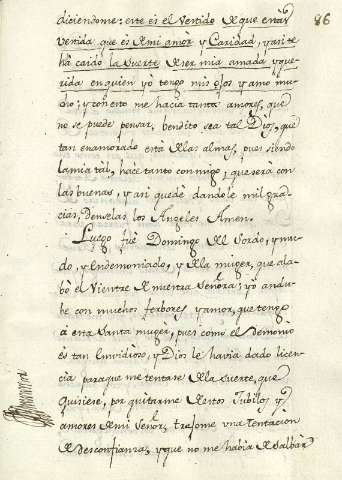 86
diciendome: este es el Vestido de que estàs
vestida que es de mi amòr y Caridad, y asi te
ha caido la suerte de ser mia amada y que-
rida en quien yò tengo mis ojos y amo mu-
cho; y con esto me hacia tantos amores, que
no se puede pensar, bendito sea tal Dios, que
tan enamorado està de las almas, pues siendo
la mia tal, hace tanto conmigo, que serà con
las buenas, y asi quedè dandole mil gra-
cias, denselas los Angeles Amen.
Luego fuè Domingo del Sordo, y mu-
do, y Endemoniado, y de la muger, que ala-
bò el Vientre de nuestra Señora; yò andu-
be con muchos ferbores y amor, que tengo
à esta Santa mugèr, pues como el demonio
es tan Envidioso, y Dios le havia dado licen-
cia para que me tentase de la suerte, que
quisiese, por quitarme de estos Jubilos y
amores de mi Señor, trajome una tentacion
de desconfianza, y que no me habia de Salbàr